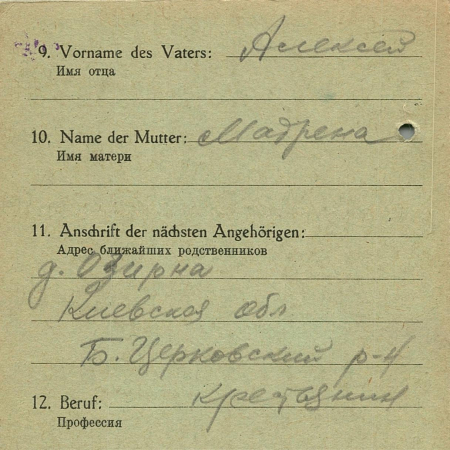 9. Vorname des Vaters: Алексей
Имя отца
10. Name der Mutter: Мадрена
Имя матери
11. Anschrift der nächsten Angehörigen:
Адрес ближайших родственников
д. Озирна
Киевская обл
Б. Церковский р-н
12. Beruf: крестьянин
Профессия